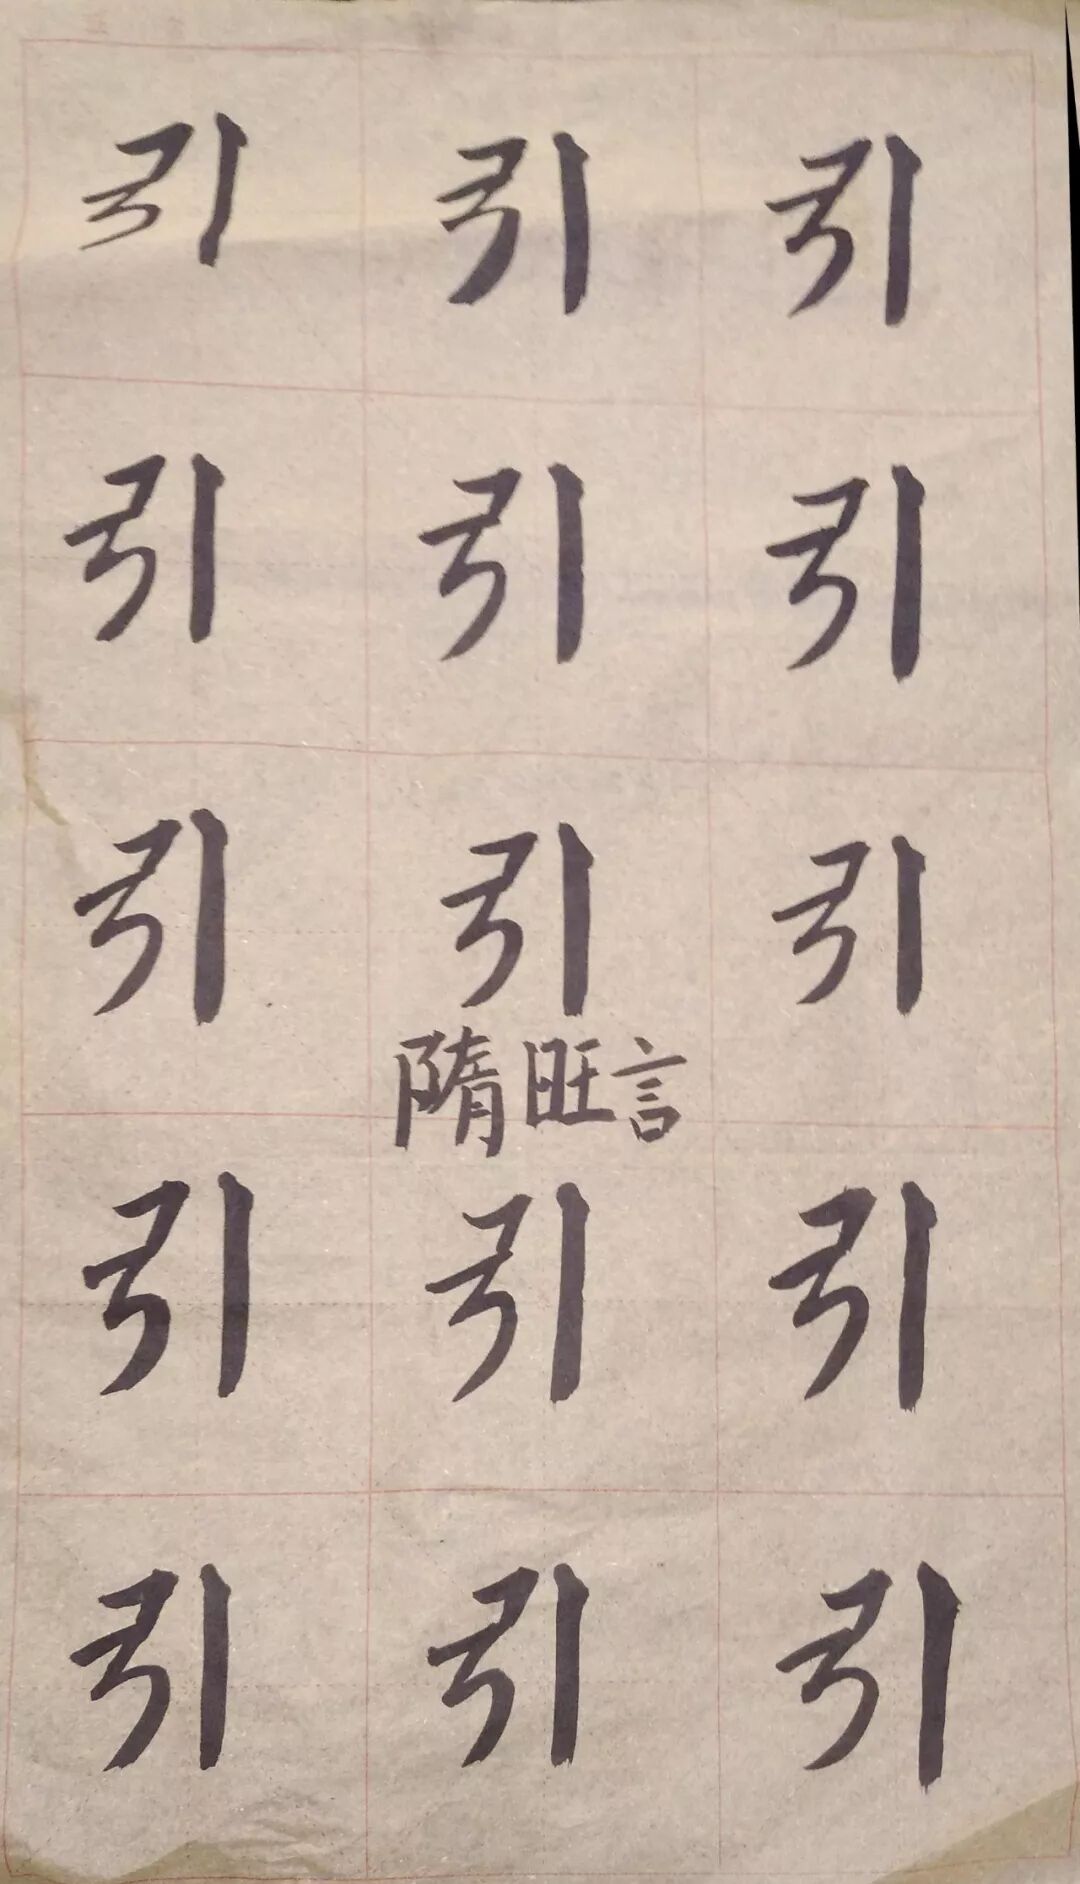 引 引 引
引 引 引
引 引 引
隋旺言
引 引 引
引 引 引